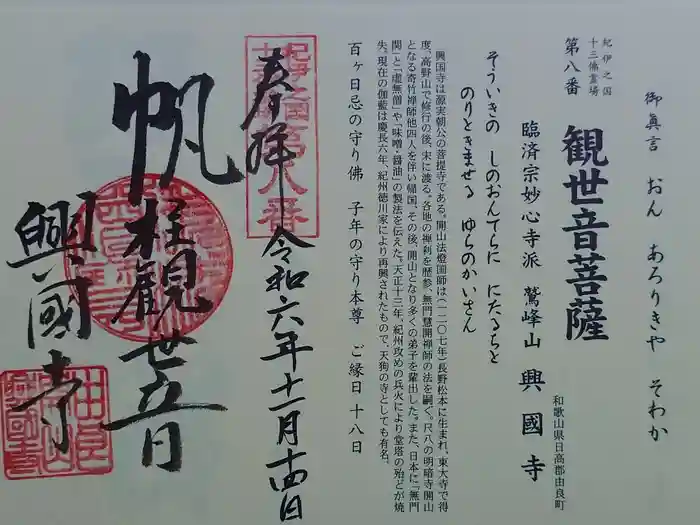 御眞言 おん あろりきや そわか
紀伊之国
十三佛霊場
第八番 観世音菩薩
和歌山県日高郡由良町
臨済宗妙心寺派 鷲峰山 興國寺
そういきの しのおんてらに にたるちと
のりときませる ゆらのかいさん
興国寺は源実朝公の菩提寺である。開山法燈国師は(一二〇七年)長野松本に生まれ、東大寺で得
度、高野山で修行の後、宋に渡る。各地の禅利を歴参、無門慧開禅師の法を嗣ぐ。尺八の明暗寺開山
となる寄竹禅師他四人を伴い帰国、その後、開山となり多くの弟子を輩出した。また、日本に「無門
関」と「虚無僧」や「味噌・醤油」の製法を伝えた。天正十三年、紀州攻めの兵火により堂塔の殆どが焼
失。現在の伽藍は慶長六年、紀州徳川家により再興されたもので、天狗の寺としても有名。
百ヶ日忌の守り佛 子年の守り本尊 ご縁日 十八日
奉拝 令和六年十一月十四日
紀伊之國
第八番
帆柱観世音
興國寺